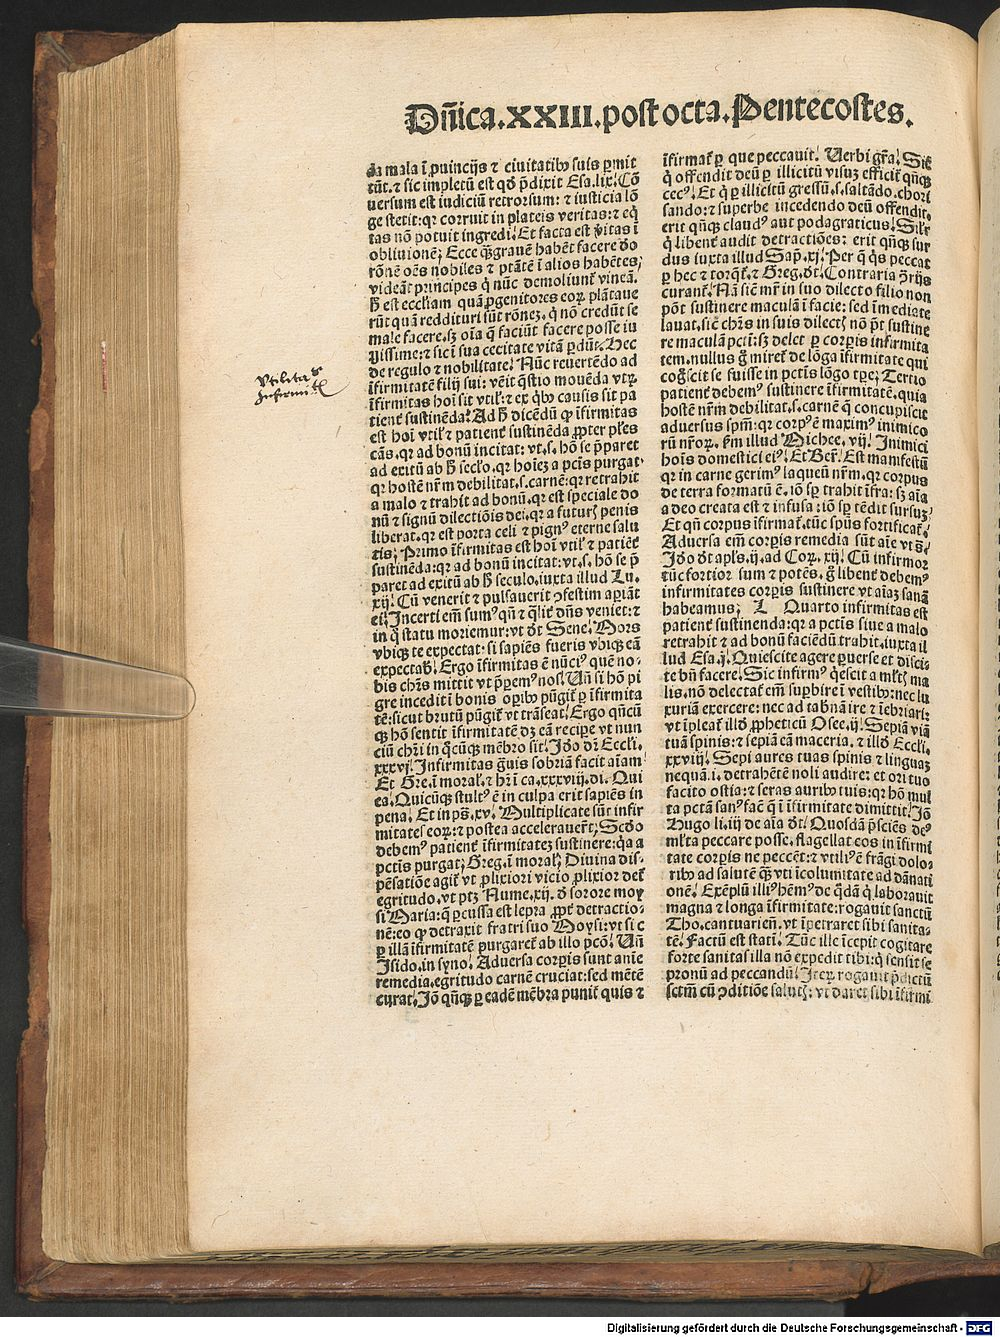 Dñica.XXIII.post octa.Pentecostes.
da mala ī ꝓuincijs ⁊ ciuitatibꝰ suis ꝑmit
tūt.⁊ sic impletū est qđ p̄dixit Esa.lix. Cō
uersum est iudiciū retrorsum: ⁊ iusticia lō
ge stetit: qr corruit in plateis veritas: ⁊ eq̄
tas nō potuit ingredi. Et facta est v̄itas ī
obliuionē; Ecce qꝫgrauē habēt facere đo
rōnē oēs nobiles ⁊ ptātē ī alios habētes,
videāt principes q̇ nūc demoliunť vineā.
ħ est eccľiam quā ꝓgenitores eoꝝ plātaue
rūt quā reddituri sūt rōneꝫ. q̇ nō credūt se
male facere. sꝫ oīa q̄ faciūt facere posse iu
stissime: ⁊ sic ī sua cecitate vitā ꝑdūt. Hec
de regulo ⁊ nobilitate. Nūc reuertēdo ad
īfirmitatē filij sui: vēit q̄stio mouēda vtꝝ
īfirmitas hoī sit vtiľ: ⁊ ex q̇bꝰ causis sit pa
tienť sustinēda. Ad ħ dicēdū ꝙ īfirmitas
est hoī vtiľ ⁊ patienť sustinēda ꝓpter pľes
cās. qr ad bonū incitat: vt.s. hō se p̄paret
ad exitū ab ħ secľo. qr hoīeꝫ a pctīs purgat.
qr hostē nr̄m debilitat.s.carnē: qr retrahit
a malo ⁊ trahit ad bonū. qr est speciale do
nū ⁊ signū dilectiōis dei. qr a futurꝭ penis
liberat. qr est porta celi ⁊ pignꝰ eterne salu
tis; Primo īfirmitas est hoī vtiľ ⁊ patiēť
sustinēda: qr ad bonū incitat: vt.s. hō se p̄
paret ad exitū ab ħ seculo. iuxta illud Lu.
xij. Cū venerit ⁊ pulsauerit ꝯfestim apiāt
ei. Incerti em̄ sumꝰ qn̄ ⁊ q̄liť dn̄s veniet: ⁊
in q̇ statu moriemur: vt đt Sene. Mors
vbiqꝫ te expectat: si sapiēs fueris vbiqꝫ eā
expectabꝭ. Ergo īfirmitas ē nūciꝰ quē no⸗
bis chrīs mittit vt p̄ꝑemꝰ nos. Vn̄ si hō pi
gre incedit ī bonis oꝑibꝰ pūgiť ꝑ īfirmita
tē: sicut brutū pūgiť vt trāseat. Ergo qn̄cū
qꝫ hō sentit īfirmitatē dꝫ eā recipe vt nun
ciū chrī in q̇cūqꝫ mēbro sit. Jđo dr̄ Eccľi.
xxxvj. Infirmitas grauis sobriā facit aīam
Et Gre.ī moral.⁊ hr̄ ī ca.xxxviij.di. Qui
ea. Quicūqꝫ stulťꝰ ē in culpa erit sapiēs in
pena. Et in ps̄.xv. Multiplicate sūt infir
mitates eoꝝ: ⁊ postea accelerauerūt; Scđo
debemꝰ patienť īfirmitateꝫ sustinere: q̇a a
pctīs purgat; Greg.ī moralꝭ; Diuina dis⸗
pēsatiōe agiť vt ꝓlixiori vicio ꝓlixior deť
egritudo. vt ptꝫ Nume.xij. đ sorore moy
si Maria: q̄ ꝑcussa est lepra ꝓpť detractio⸗
nē: eo ꝙ detraxit fratri suo Moysi: vt sic
ꝑ illā īfirmitatē purgareť ab illo pcō. Vn̄
Isido.in syno. Aduersa corpis sunt anie
remedia. egritudo carnē cruciat: sed mētē
curat. Jō qn̄qꝫ ꝑ eadē mēbra puniť quis ⁊
īfirmať ꝑ que peccauit. Verbi gr̄a. Sic
q̇ offendit deū ꝑ illicitū visuꝫ efficiť qn̄qꝫ
cecꝰ. Et q̇ ꝑ illicitū gressū.s.saltādo. chori
sando: ⁊ superbe incedendo deū offendit.
erit qn̄qꝫ claudꝰ aut podagraticus. Siľr
q̇ libenť audit detractiōes: erit qn̄qꝫ sur
dus iuxta illud Sap̄.xj. Per q̄ q̇s peccat
ꝑ hec ⁊ torqueť. ⁊ Greg. đt. Contraria ꝯrijs
curanť. Nā sicut mr̄ in suo dilecto filio non
pōt sustinere maculā ī facie: sed īmediate
lauat. sic chrīs in suis dilectꝭ nō pōt sustine
re maculā pctī: sꝫ delet ꝑ corpis infirmita
tem. nullus g̊ mireť de lōga īfirmitate qui
cognoscit se fuisse in pctīs lōgo tpe; Tertio
patienť debemꝰ sustinere īfirmitatē. quia
hostē nr̄m debilitat.s.carnē q̄ concupiscit
aduersus spm̄: qr corpꝰ ē maximꝰ inimico
rū nr̄oꝝ. ẜm illud Michee.vij. Inimici
hoīs domestici eiꝰ. Et Ber̄. Est manifestū
qr in carne gerimꝰ laqueū nr̄m. qr corpus
de terra formatū ē. iō sꝑ trahit īfra: sꝫ aīa
a deo creata est ⁊ infusa: iō sꝑ tēdit sursuꝫ
Et qn̄ corpus īfirmať. tūc spūs fortificať.
Aduersa em̄ corpis remedia sūt aīe vt s̄.
Jđo đt apľs.ij.ad Coꝝ.xij. Cū infirmor
tūc fortior sum ⁊ potēs. g̊ libenť debemꝰ
infirmitates corpis sustinere vt aīaꝫ sanā
habeamus; L Quarto infirmitas est
patienť sustinenda: qr a pctīs siue a malo
retrahit ⁊ ad bonū faciēdū trahit. iuxta il
lud Esa.j. Quiescite agere ꝑuerse ⁊ disci⸗
te bn̄ facere. Sic infirmꝰ q̇escit a mľtꝭ ma
lis. nō delectať em̄ suꝑbire ī vestibꝰ: nec lu
xuriā exercere: nec ad tabn̄ā ire ⁊ īebriari:
vt īpleať illđ ꝓpheticū Osee.ij. Sepiā viā
tuā spinis: ⁊ sepiā eā maceria. ⁊ illđ Eccľi.
xxviij. Sepi aures tuas spinis ⁊ linguaꝫ
nequā.i. detrahētē noli audire: et ori tuo
facito ostia: ⁊ seras auribꝰ tuis: qr hō mul
ta pctā sanꝰ facit q̄ ī īfirmitate dimittit. Jō
Hugo li.iij de aīa đt. Quosdā p̄sciēs deꝰ
mľta peccare posse. flagellat eos in īfirmi
tate corpis ne peccēt: ⁊ vtiliꝰ ē frāgi dolo⸗
ribꝰ ad salutē qꝫ vti īcolumitate ad dānati
onē. Exēplū illiꝰ hēmꝰ de q̇dā q̇ laborauit
magna ⁊ longa īfirmitate: rogauit sanctū
Tho.cantuarien̄. vt īpetraret sibi sanita⸗
tē. Factū est statī. Tūc ille īcepit cogitare
forte sanitas illa nō expedit tibi: q̇ sensit se
pronū ad peccandū. Iteꝝ rogauit p̄dictū
sctm̄ cū ꝯditiōe salutꝭ: vt daret sibi īfirmi
Vtilitas
Infirmitatis
Digitalisierung gefördert durch die Deutsche Forschungsgemeinschaft - DFG